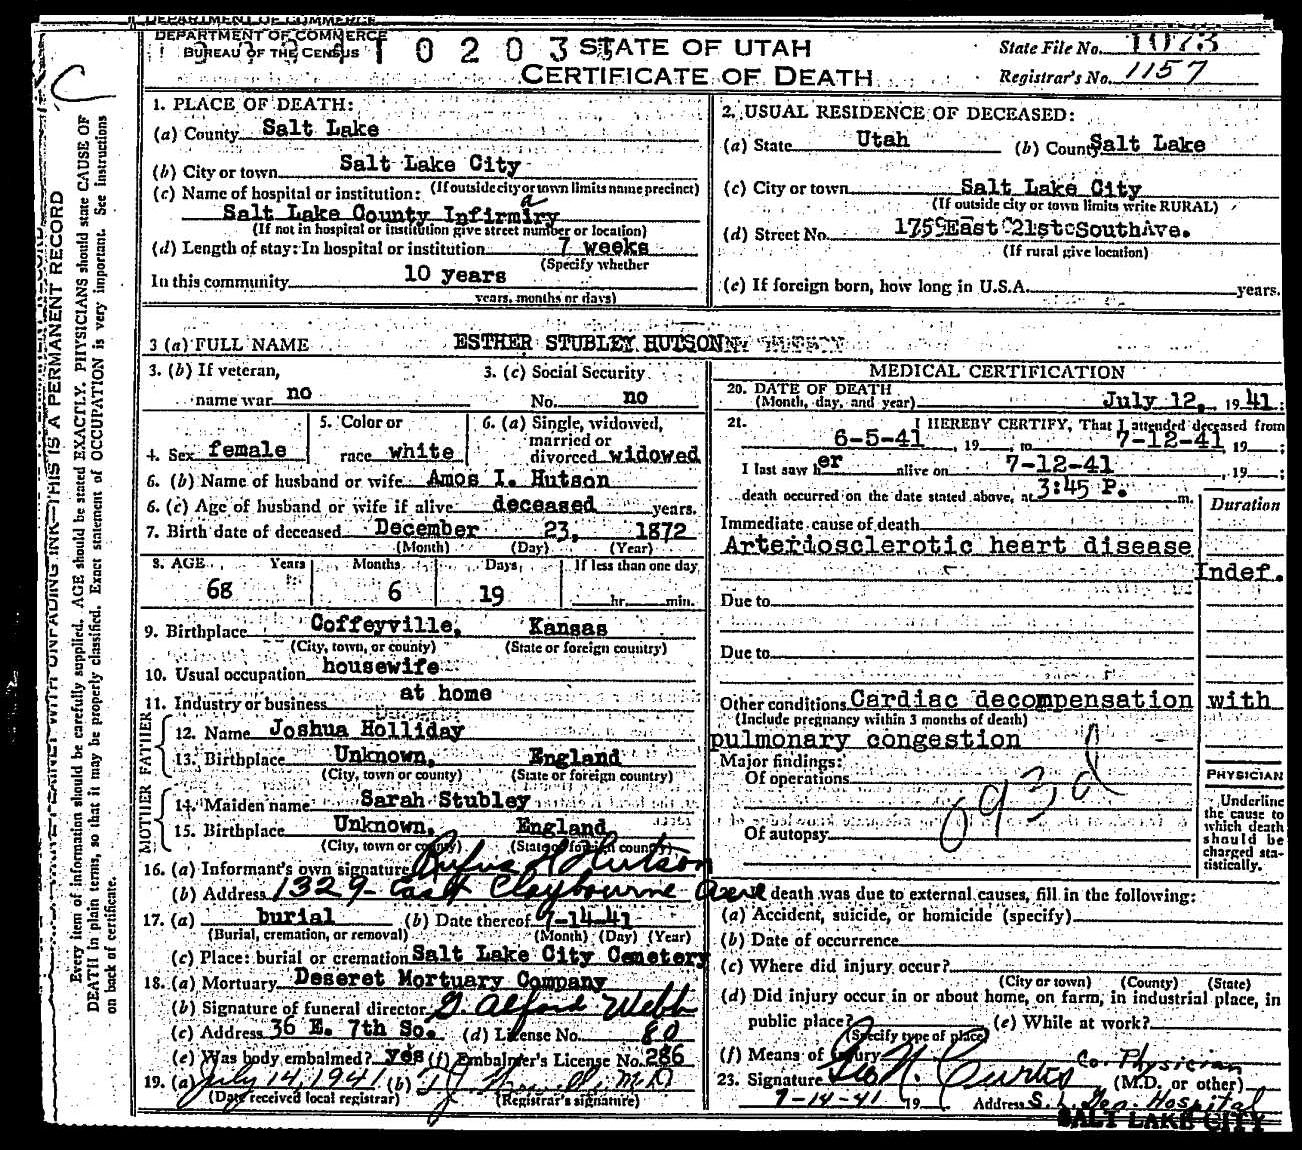 DEPARTMENT OF COMMERCE
BUREAU OF THE CENSUS
10203
STATE OF UTAH
CERTIFICATE OF DEATH
State File No. 1073
Registrar's No. 1157
C
Every item of information should be carefully supplied. AGE should be stated EXACTLY. PHYSICIANS should state CAUSE OF
DEATH in plain terms, so that it may be properly classified. Exact statement of OCCUPATION is very important. See instructions
on back of certificate.
WITH UNFADING INK—THIS IS A PERMANENT RECORD
1. PLACE OF DEATH:
(a) County Salt Lake
(b) City or town Salt Lake City
(If outside city or town limits name precinct)
(c) Name of hospital or institution:
Salt Lake County Infirmiry
a
(If not in hospital or institution give street number or location)
(d) Length of stay: In hospital or institution 7 weeks
(Specify whether
In this community 10 years
years, months or days)
2. USUAL RESIDENCE OF DECEASED:
(a) State Utah (b) County Salt Lake
(c) City or town Salt Lake City
(If outside city or town limits write RURAL)
(d) Street No. 175 East 21st South Ave.
(If rural give location)
(e) If foreign born, how long in U.S.A. years.
3 (a) FULL NAME ESTHER STUBLEY HUTSON
3. (b) If veteran,
name war no
3. (c) Social Security
No. no
4. Sex female
5. Color or
race white
6. (a) Single, widowed,
married or
divorced widowed
6. (b) Name of husband or wife Amos I. Hutson
6. (c) Age of husband or wife if alive deceased years.
7. Birth date of deceased December 23, 1872
(Month) (Day) (Year)
8. AGE Years Months Days If less than one day
68 6 19 hr. min.
9. Birthplace Coffeyville, Kansas
(City, town, or county) (State or foreign country)
10. Usual occupation housewife
11. Industry or business at home
FATHER
12. Name Joshua Holliday
13. Birthplace Unknown, England
(City, town or county) (State or foreign country)
MOTHER
14. Maiden name Sarah Stubley
15. Birthplace Unknown, England
(City, town or county) (State or foreign country)
16. (a) Informant's own signature Rufus H Hutson
(b) Address 1329 East Claybourne Ave
17. (a) burial (b) Date thereof 7-14-41
(Burial, cremation, or removal) (Month) (Day) (Year)
(c) Place: burial or cremation Salt Lake City Cemetery
18. (a) Mortuary Deseret Mortuary Company
(b) Signature of funeral director G. Alford Webb
(c) Address 36 E. 7th So. (d) License No. 80
(e) Was body embalmed? yes (f) Embalmer's License No. 286
19. (a) July 14, 1941 (b) M.D.
(Date received local registrar) (Registrar's signature)
MEDICAL CERTIFICATION
20. DATE OF DEATH
(Month, day, and year) July 12, 1941
21. I HEREBY CERTIFY, That I attended deceased from
6-5-41, 19 , to 7-12-41, 19 ;
I last saw her alive on 7-12-41, 19 ;
death occurred on the date stated above, at 3:45 P. m.
Duration
Immediate cause of death
Arteriosclerotic heart disease
Indef.
Due to
Due to
Other conditions Cardiac decompensation with
(Include pregnancy within 3 months of death)
pulmonary congestion
Major findings:
Of operations
Of autopsy
093d
PHYSICIAN
Underline
the cause to
which death
should be
charged sta-
tistically.
death was due to external causes, fill in the following:
(a) Accident, suicide, or homicide (specify)
(b) Date of occurrence
(c) Where did injury occur?
(City or town) (County) (State)
(d) Did injury occur in or about home, on farm, in industrial place, in
public place? (e) While at work?
(Specify type of place)
(f) Means of injury
23. Signature Geo N. Curtis Co. Physician
(M.D. or other)
7-14-41 19 Address S. L. Gen. Hospital
SALT LAKE CITY